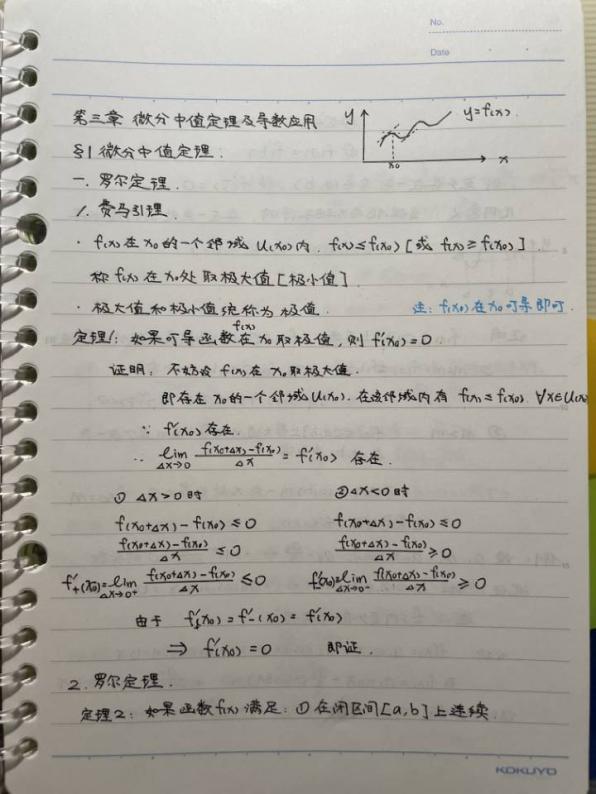 No.
Date
第三章 微分中值定理及导数应用
y
y=f(x)
x0
x
§1 微分中值定理.
一. 罗尔定理.
1. 费马引理.
· f(x)在x0的一个邻域U(x0)内, f(x)≤f(x0) [或 f(x)≥f(x0)]
称f(x)在x0处取极大值[极小值].
· 极大值和极小值统称为极值.
注: f(x)在x0可导即可.
定理1: 如果可导函数f(x)在x0取极值, 则f'(x0)=0
证明: 不妨设f(x)在x0取极大值.
即存在x0的一个邻域U(x0). 在该邻域内有 f(x)≤f(x0) ∀x∈U(x0)
∵ f'(x0)存在.
∴ lim Δx→0 (f(x0+Δx)-f(x0))/Δx = f'(x0) 存在.
① Δx>0时
② Δx<0时
f(x0+Δx)-f(x0)≤0
f(x0+Δx)-f(x0)≤0
(f(x0+Δx)-f(x0))/Δx ≤0
(f(x0+Δx)-f(x0))/Δx ≥0
f'+(x0)=lim Δx→0+ (f(x0+Δx)-f(x0))/Δx ≤0
f'-(x0)=lim Δx→0- (f(x0+Δx)-f(x0))/Δx ≥0
由于 f'+(x0)=f'-(x0)=f'(x0)
⇒ f'(x0)=0 即证.
2. 罗尔定理.
定理2: 如果函数f(x)满足: ① 在闭区间[a,b]上连续.
KOKUYO